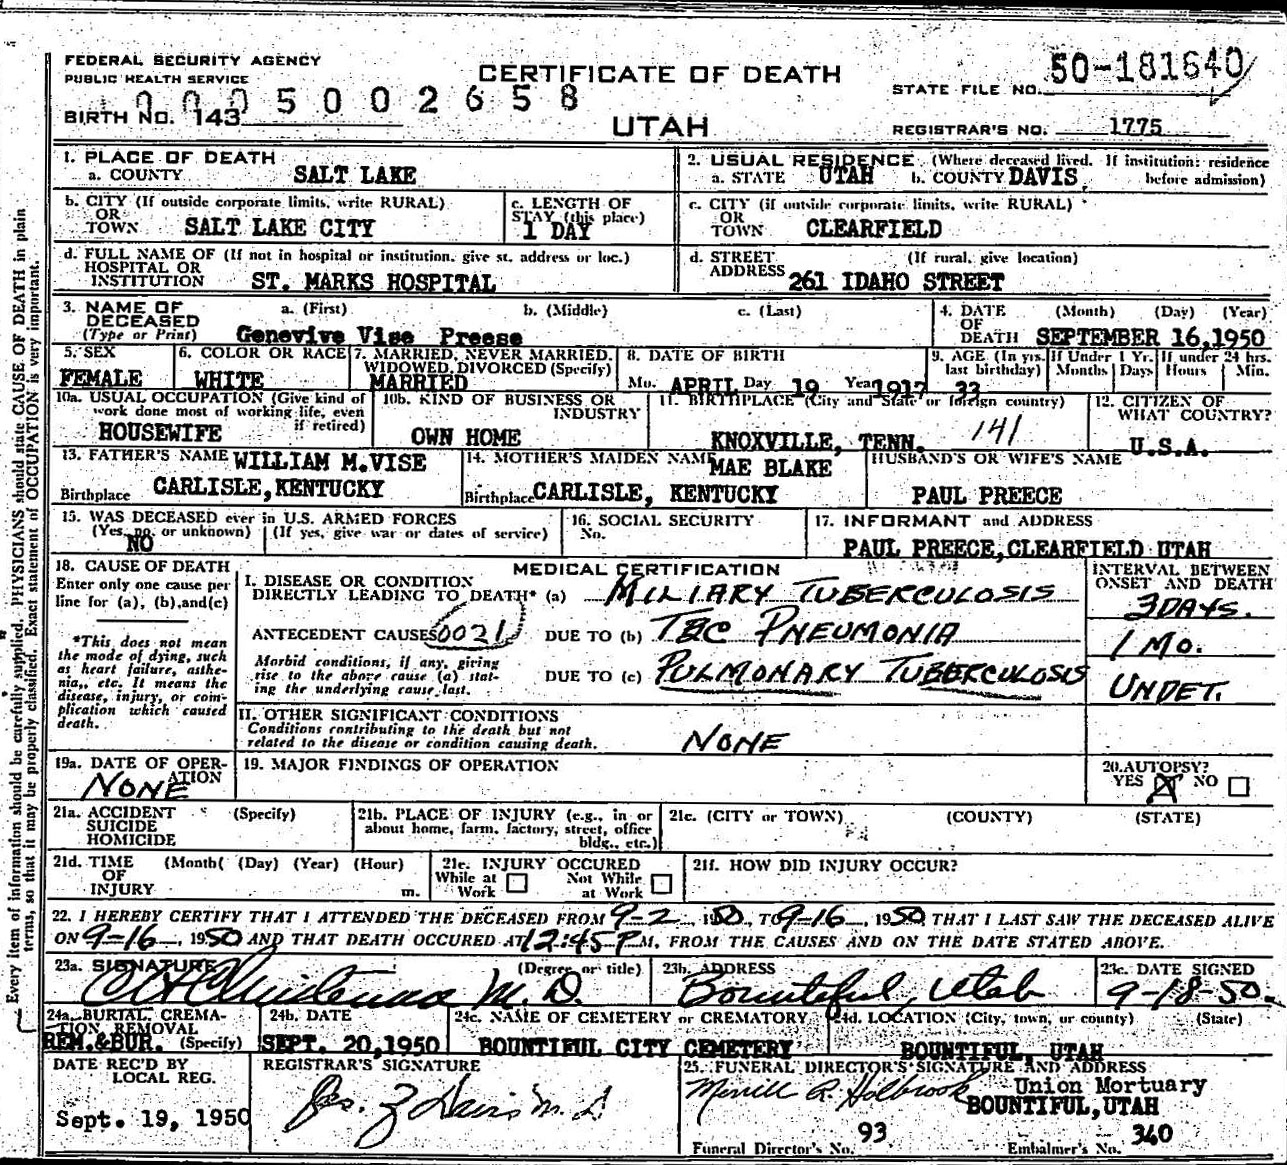 FEDERAL SECURITY AGENCY
PUBLIC HEALTH SERVICE
CERTIFICATE OF DEATH
50-181640
STATE FILE NO.
0005002658
BIRTH NO. 143
UTAH
REGISTRAR'S NO. 1775
1. PLACE OF DEATH
a. COUNTY SALT LAKE
2. USUAL RESIDENCE (Where deceased lived. If institution: residence before admission)
a. STATE UTAH b. COUNTY DAVIS
b. CITY (If outside corporate limits, write RURAL)
OR
TOWN SALT LAKE CITY
c. LENGTH OF
STAY (this place)
1 DAY
c. CITY (if outside corporate limits, write RURAL)
OR
TOWN CLEARFIELD
d. FULL NAME OF (If not in hospital or institution, give st. address or loc.)
HOSPITAL OR
INSTITUTION ST. MARKS HOSPITAL
d. STREET (If rural, give location)
ADDRESS 261 IDAHO STREET
3. NAME OF DECEASED
(Type or Print)
a. (First) b. (Middle) c. (Last)
Genevive Vise Preese
4. DATE OF DEATH (Month) (Day) (Year)
SEPTEMBER 16,1950
5. SEX
FEMALE
6. COLOR OR RACE
WHITE
7. MARRIED, NEVER MARRIED,
WIDOWED, DIVORCED (Specify)
MARRIED
8. DATE OF BIRTH
Mo. APRIL Day 19 Year 1917
9. AGE (In yrs. last birthday) If Under 1 Yr. If under 24 hrs.
33 Months Days Hours Min.
10a. USUAL OCCUPATION (Give kind of
work done most of working life, even
if retired)
HOUSEWIFE
10b. KIND OF BUSINESS OR
INDUSTRY
OWN HOME
11. BIRTHPLACE (City and State or foreign country)
KNOXVILLE, TENN. 141
12. CITIZEN OF
WHAT COUNTRY?
U.S.A.
13. FATHER'S NAME WILLIAM M.VISE
Birthplace CARLISLE, KENTUCKY
14. MOTHER'S MAIDEN NAME MAE BLAKE
Birthplace CARLISLE, KENTUCKY
HUSBAND'S OR WIFE'S NAME
PAUL PREECE
15. WAS DECEASED ever in U.S. ARMED FORCES
(Yes, no, or unknown) (If yes, give war or dates of service)
NO
16. SOCIAL SECURITY
No.
17. INFORMANT and ADDRESS
PAUL PREECE, CLEARFIELD UTAH
18. CAUSE OF DEATH
Enter only one cause per
line for (a), (b), and (c)
*This does not mean
the mode of dying, such
as heart failure, asthe-
nia, etc. It means the
disease, injury, or com-
plication which caused
death.
MEDICAL CERTIFICATION
INTERVAL BETWEEN
ONSET AND DEATH
I. DISEASE OR CONDITION
DIRECTLY LEADING TO DEATH* (a) MILIARY TUBERCULOSIS 3 DAYS.
ANTECEDENT CAUSES 0021 DUE TO (b) TBC PNEUMONIA 1 MO.
Morbid conditions, if any, giving
rise to the above cause (a) stat-
ing the underlying cause last.
DUE TO (c) PULMONARY TUBERCULOSIS UNDET.
II. OTHER SIGNIFICANT CONDITIONS
Conditions contributing to the death but not
related to the disease or condition causing death.
NONE
19a. DATE OF OPER-
ATION
NONE
19. MAJOR FINDINGS OF OPERATION
20. AUTOPSY?
YES X NO
21a. ACCIDENT (Specify)
SUICIDE
HOMICIDE
21b. PLACE OF INJURY (e.g., in or
about home, farm, factory, street, office
bldg., etc.)
21c. (CITY or TOWN) (COUNTY) (STATE)
21d. TIME (Month( (Day) (Year) (Hour)
OF
INJURY m.
21e. INJURY OCCURED
While at Work Not While at Work
21f. HOW DID INJURY OCCUR?
22. I HEREBY CERTIFY THAT I ATTENDED THE DECEASED FROM 9-2, 1950, TO 9-16, 1950 THAT I LAST SAW THE DECEASED ALIVE
ON 9-16, 1950 AND THAT DEATH OCCURED AT 12:45 P M, FROM THE CAUSES AND ON THE DATE STATED ABOVE.
23a. SIGNATURE (Degree or title)
M.D.
23b. ADDRESS
Bountiful, Utah
23c. DATE SIGNED
9-18-50
24a. BURIAL CREMA-
TION, REMOVAL
(Specify)
REM.&BUR.
24b. DATE
SEPT. 20,1950
24c. NAME OF CEMETERY or CREMATORY
BOUNTIFUL CITY CEMETERY
24d. LOCATION (City, town, or county) (State)
BOUNTIFUL, UTAH
DATE REC'D BY
LOCAL REG.
Sept. 19, 1950
REGISTRAR'S SIGNATURE
Jas. Z Davis M.D.
25. FUNERAL DIRECTOR'S SIGNATURE AND ADDRESS
Merrill R. Holbrook Union Mortuary
BOUNTIFUL,UTAH
Funeral Director's No. 93 Embalmer's No. 340
Every item of information should be carefully supplied. PHYSICIANS should state CAUSE OF DEATH in plain
terms, so that it may be properly classified. Exact statement of OCCUPATION is very important.